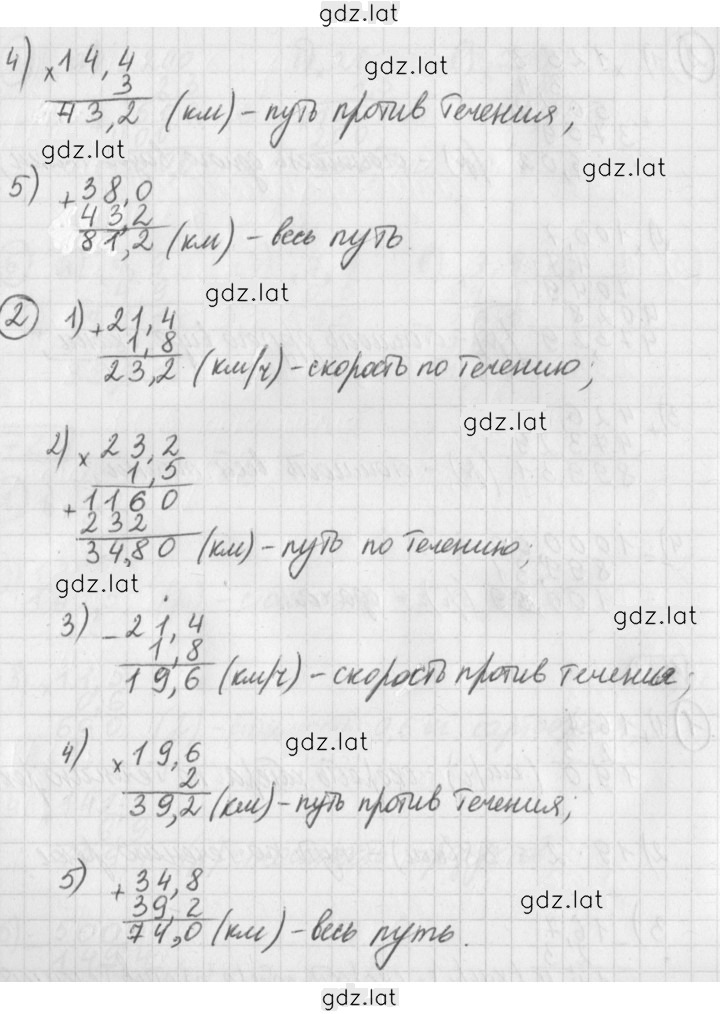 gdz.lat
4) × 14,4
3
43,2 (км) – путь против течения;
gdz.lat
gdz.lat
gdz.lat
5) + 38,0
43,2
81,2 (км) – весь путь.
gdz.lat
2 1) + 21,4
1,8
23,2 (км/ч) – скорость по течению;
gdz.lat
2) × 23,2
1,5
+ 1160
232
34,80 (км) – путь по течению;
gdz.lat
gdz.lat
3) – 21,4
1,8
19,6 (км/ч) – скорость против течения;
gdz.lat
4) × 19,6
2
39,2 (км) – путь против течения;
5) + 34,8
39,2
74,0 (км) – весь путь.
gdz.lat
gdz.lat